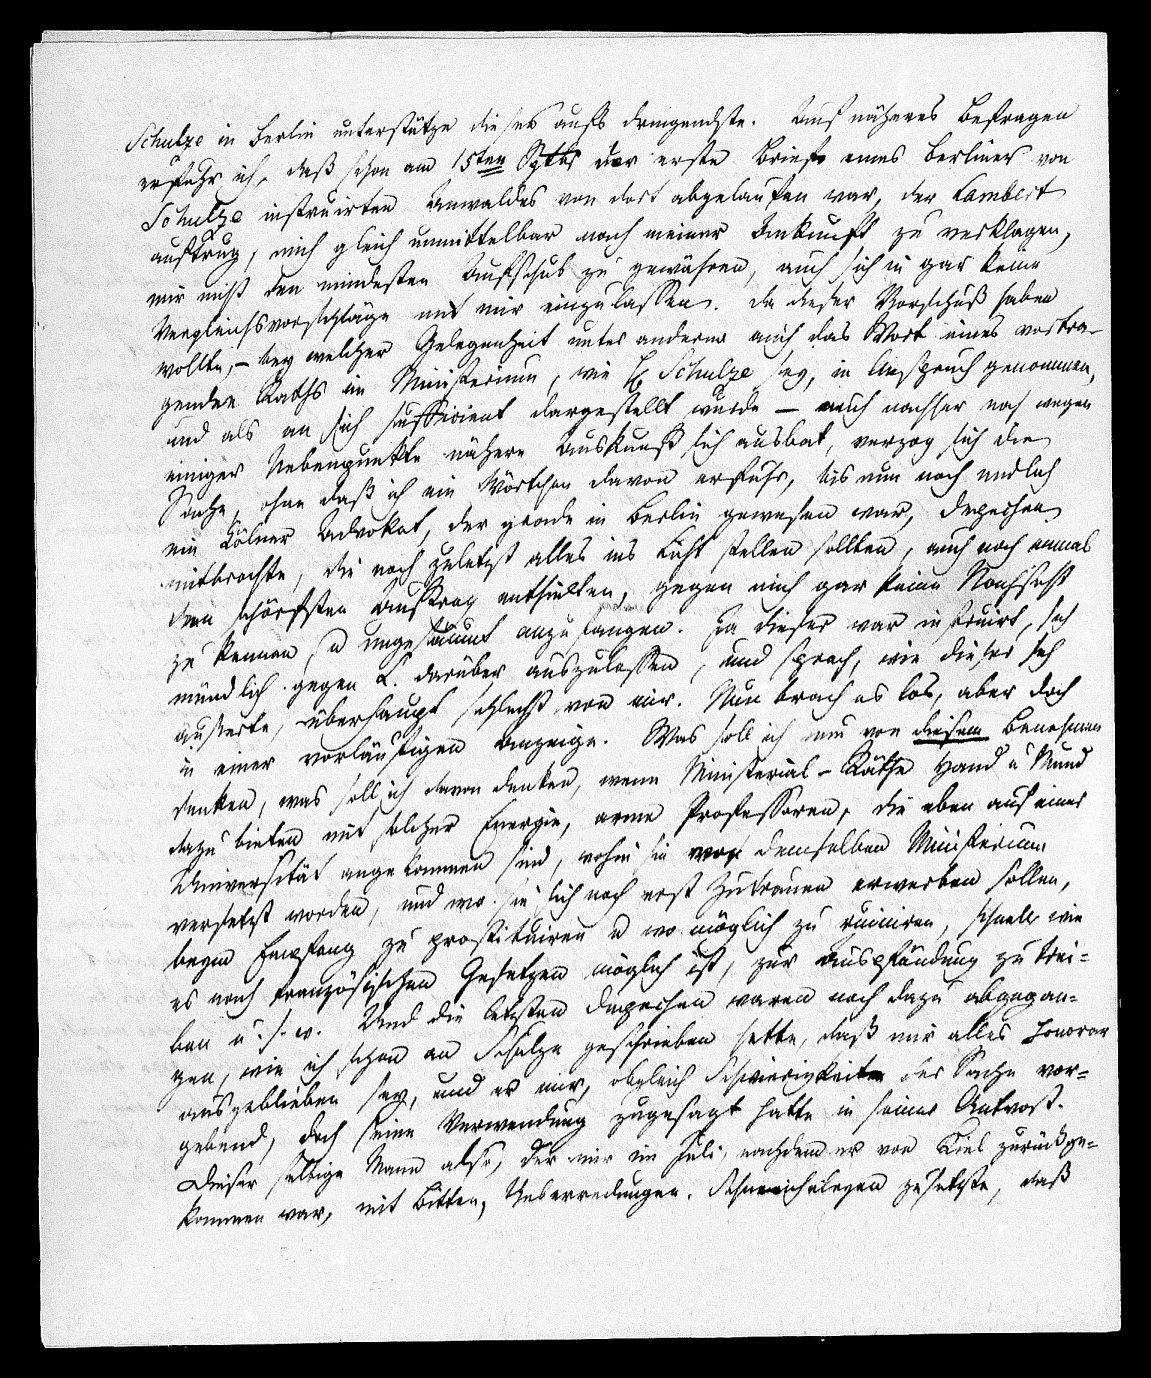 Schulze in Berlin unterstütze dieses aufs dringendste. Auf näheres Befragen
erfuhr ich, daß schon am 15ten Sptbr der erste Brief eines Berliner von
Schulze instruirten Anwaldes von dort abgelaufen war, der Lambert
auftrug, mich gleich unmittelbar nach meiner Ankunft zu verklagen,
mir nicht den mindesten Aufschub zu gewähren, auch sich in gar keine
Vergleichsvorschläge mit mir einzulassen. Da dieser Vorschuß haben
wollte, – bey welcher Gelegenheit unter anderm auch das Wort eines vortra-
genden Raths im Ministerium, wie H. Schulze sey, in Anspruch genommen,
und als an sich sufficient dargestellt wurde – auch nachher noch wegen
einiger Nebenpunkte nähere Auskunft sich ausbat, verzog sich die
Sache, ohne daß ich ein Wörtchen davon erfuhr, bis nun noch endlich
ein Kölner Advokat, der grade in Berlin gewesen war, Depechen
mitbrachte, die noch zuletzt alles ins Licht stellen sollten, auch noch einmal
den schärfsten Auftrag enthielten, gegen mich gar keine Nachsicht
zu kennen, u ungesäumt anzufangen. Ja dieser war instruirt, sich
mündlich gegen L. darüber auszulassen, und sprach, wie dieser sich
äußerte, überhaupt schlecht von mir. Nun brach es los, aber doch
in einer vorläufigen Anzeige. Was soll ich nun von diesem Benehmen
denken, was soll ich davon denken, wenn Ministerial-Räthe Hand u Mund
dazu bieten mit solcher Energie, arme Professoren, die eben auf einer
Universität angekommen sind, wohin sie von demselben Ministerium
versetzt worden, und wo sie sich noch erst Zutrauen erwerben sollen,
beym Empfang zu prostituiren u wo möglich zu ruiniren, schnell wie
es nach französischen Gesetzen möglich ist, zur Auspfändung zu trei-
ben u. s. w. Und die letzten Depechen waren noch dazu abgegan-
gen, wie ich schon an Schulze geschrieben hatte, daß mir alles Honorar
ausgeblieben sey, und er mir, obgleich Schwierigkeiten der Sache vor-
gebend, doch seine Verwendung zugesagt hatte in seiner Antwort.
Dieser selbige Mann also, der mir im Juli, nachdem er von Kiel zurückge-
kommen war, mit Bitten, Ueberredungen, Schmeicheleyen zusetzte, daß